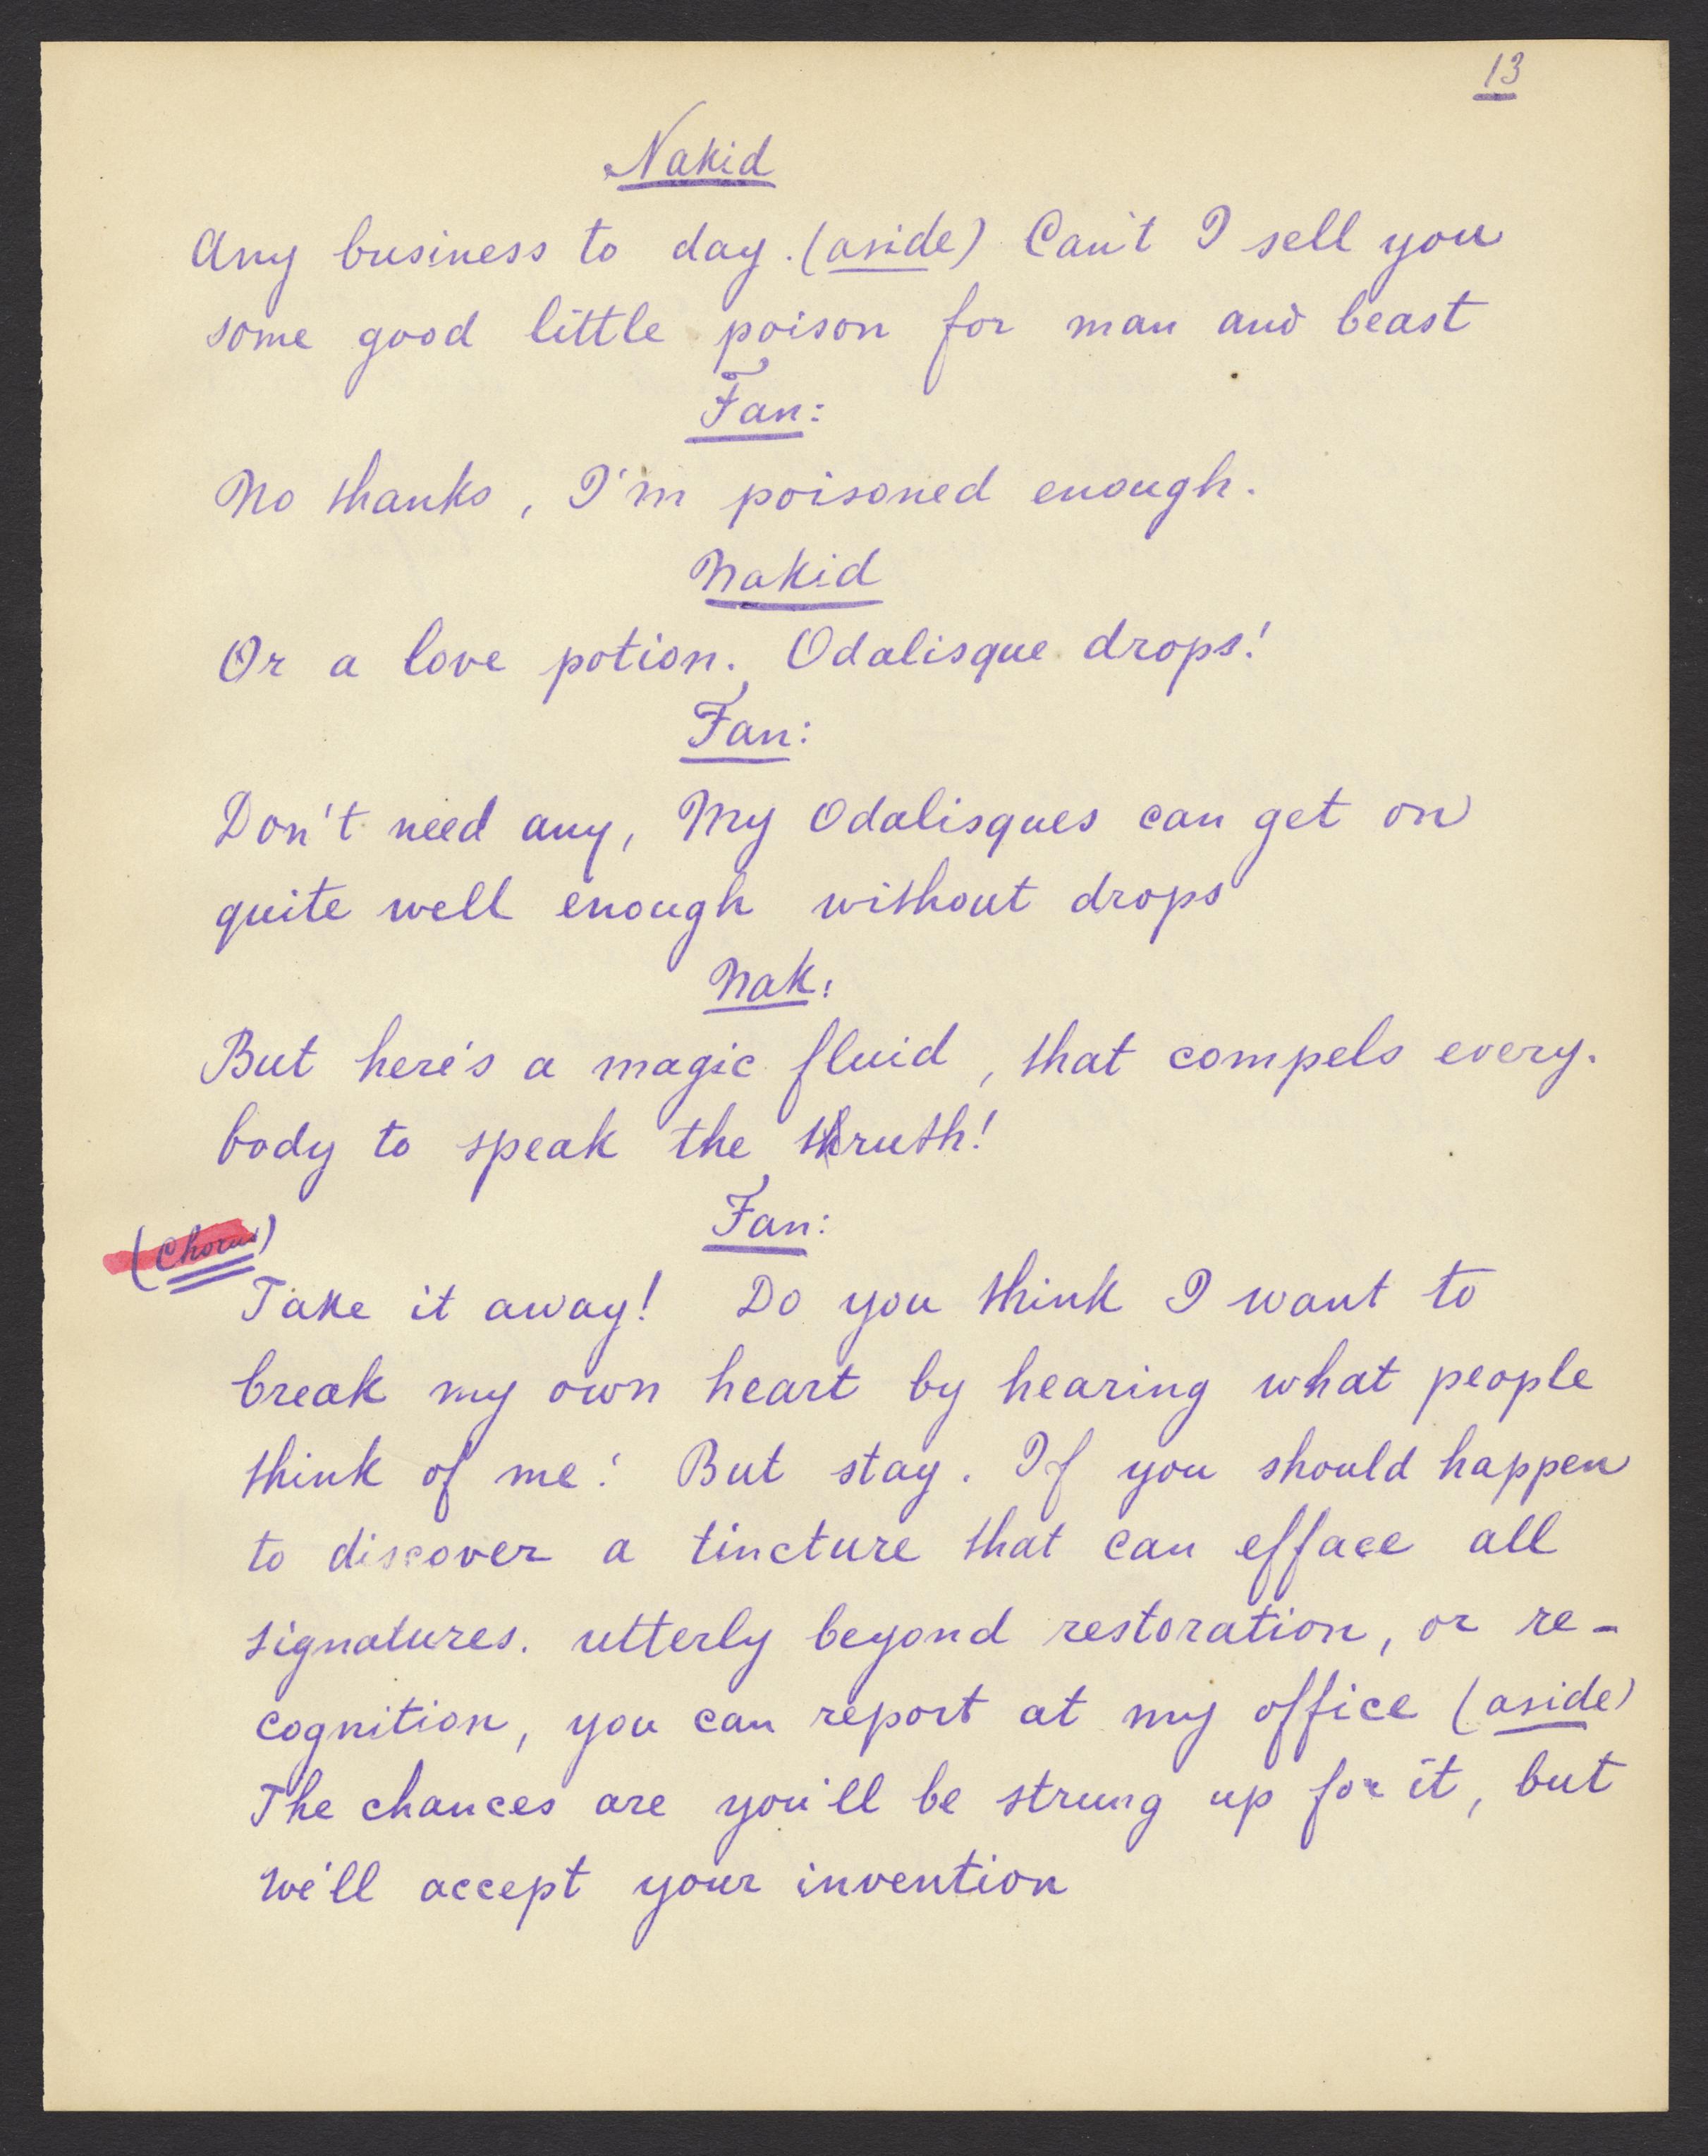 13
Nakid
Any business to day. (aside) Can't I sell you
some good little poison for man and beast
Fan:
No thanks, I'm poisoned enough.
Nakid
Or a love potion. Odalisque drops!
Fan:
Don't need any, My Odalisques can get on
quite well enough without drops
Nak:
But here's a magic fluid, that compels every-
body to speak the truth!
Fan:
(Chorus)
Take it away! Do you think I want to
break my own heart by hearing what people
think of me! But stay. If you should happen
to discover a tincture that can efface all
signatures. utterly beyond restoration, or re-
cognition, you can report at my office (aside)
The chances are you'll be strung up for it, but
we'll accept your invention